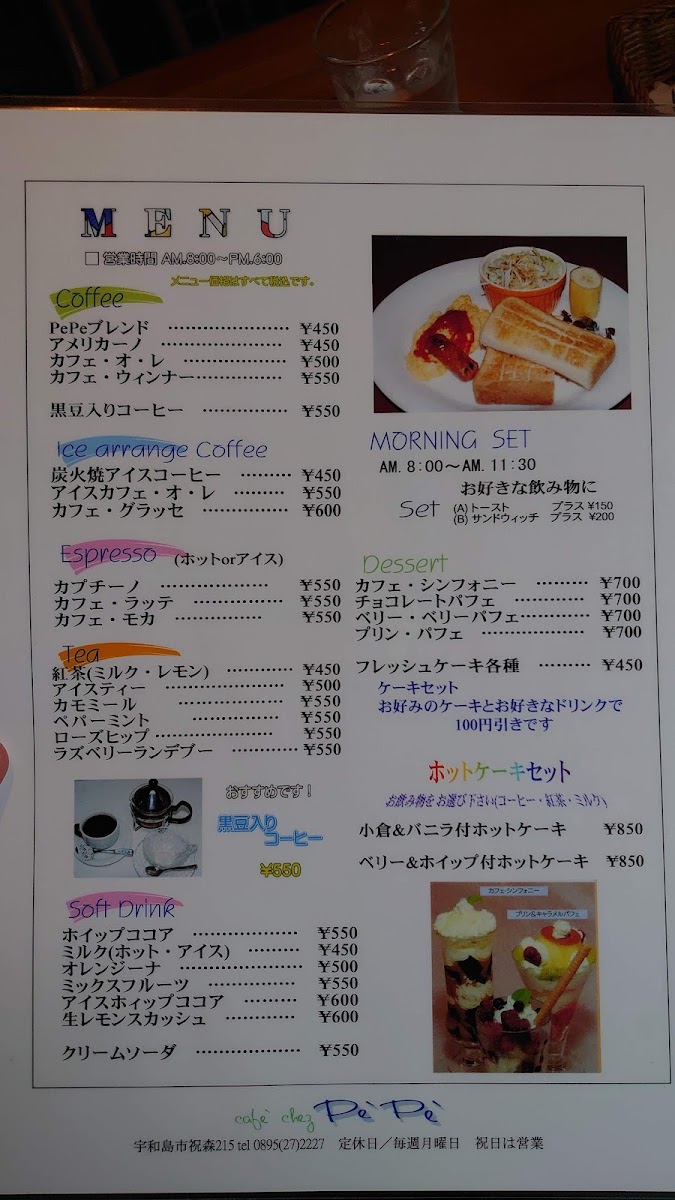 MENU
□ 営業時間 AM.8:00～PM.6:00
メニュー価格はすべて税込です。
Coffee
PePeブレンド ……………… ¥450
アメリカーノ ……………… ¥450
カフェ・オ・レ …………… ¥500
カフェ・ウィンナー………… ¥550
黒豆入りコーヒー ………… ¥550
Ice arrange Coffee
炭火焼アイスコーヒー ……… ¥450
アイスカフェ・オ・レ ……… ¥550
カフェ・グラッセ ………… ¥600
Espresso (ホットorアイス)
カプチーノ ……………… ¥550
カフェ・ラッテ …………… ¥550
カフェ・モカ …………… ¥550
Tea
紅茶(ミルク・レモン) ………… ¥450
アイスティー ……………… ¥500
カモミール …………… ¥550
ペパーミント …………… ¥550
ローズヒップ……………… ¥550
ラズベリーランデブー ………… ¥550
おすすめです！
黒豆入り
コーヒー
¥550
Soft Drink
ホイップココア ……………… ¥550
ミルク(ホット・アイス) ……… ¥450
オレンジーナ ……………… ¥500
ミックスフルーツ …………… ¥550
アイスホィップココア ………… ¥600
生レモンスカッシュ ………… ¥600
クリームソーダ ……………… ¥550
MORNING SET
AM. 8:00～AM. 11:30
お好きな飲み物に
Set (A) トースト プラス ¥150
(B) サンドウィッチ プラス ¥200
Dessert
カフェ・シンフォニー ……… ¥700
チョコレートパフェ ………… ¥700
ベリー・ベリーパフェ………… ¥700
プリン・パフェ …………… ¥700
フレッシュケーキ各種 ……… ¥450
ケーキセット
お好みのケーキとお好きなドリンクで
100円引きです
ホットケーキセット
お飲み物をお選び下さい(コーヒー・紅茶・ミルク)
小倉&バニラ付ホットケーキ ¥850
ベリー&ホイップ付ホットケーキ ¥850
カフェ・シンフォニー
プリン&キャラメルパフェ
cafe' chez Pe'Pe'
宇和島市祝森215 tel 0895(27)2227 定休日／毎週月曜日 祝日は営業